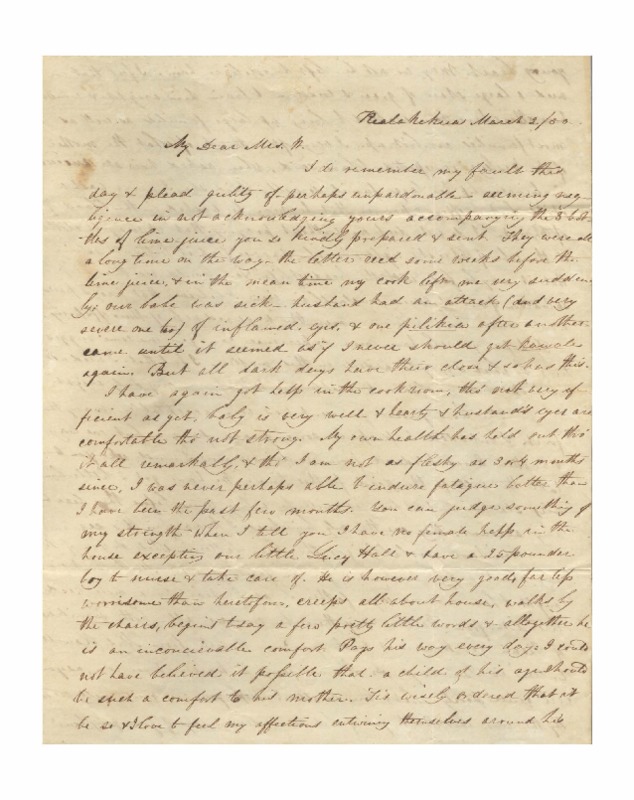 Kealakekua March 2/50.
My Dear Mrs. W.
I do remember my fault this
day & plead guilty of perhaps unpardonable seeming neg-
ligence in not acknowledging yours accompanying the 3 bot-
tles of lime juice you so kindly prepared & sent. They were all
a long time on the way - the letter recd some weeks before the
lime juice, & in the mean time my cook left me very sudden
ly; our babe was sick - husband had an attack (and very
severe one too) of inflamed eyes, & one pilikia after another
came until it seemed as if I never should get
again. But all dark days have their close & so has this.
I have again got help in the cookroom, tho' not very ef
ficient as yet, baby is very well & hearty & husband's eyes are
comfortable tho' not strong. My own health has held out thro'
it all remarkably, & tho' I am not as fleshy as 3 or 4 months
since, I was never perhaps able to endure fatigue better than
I have been the past few months. You can judge something of
my strength when I tell you I have no female help in the
house excepting one little Lucy Hall & have a 25 pounder
boy to nurse & take care of. He is however very good, far less
worrisome than heretofore, creeps all about house, walks by
the chairs, begins to say a few pretty little words & altogether he
is an inconceivable comfort. Pays his way every day. I could
not have believed it possible that a child of his age should
be such a comfort to his mother. 'Tis wisely ordered that it
be so & I love to feel my affections entwining themselves around his